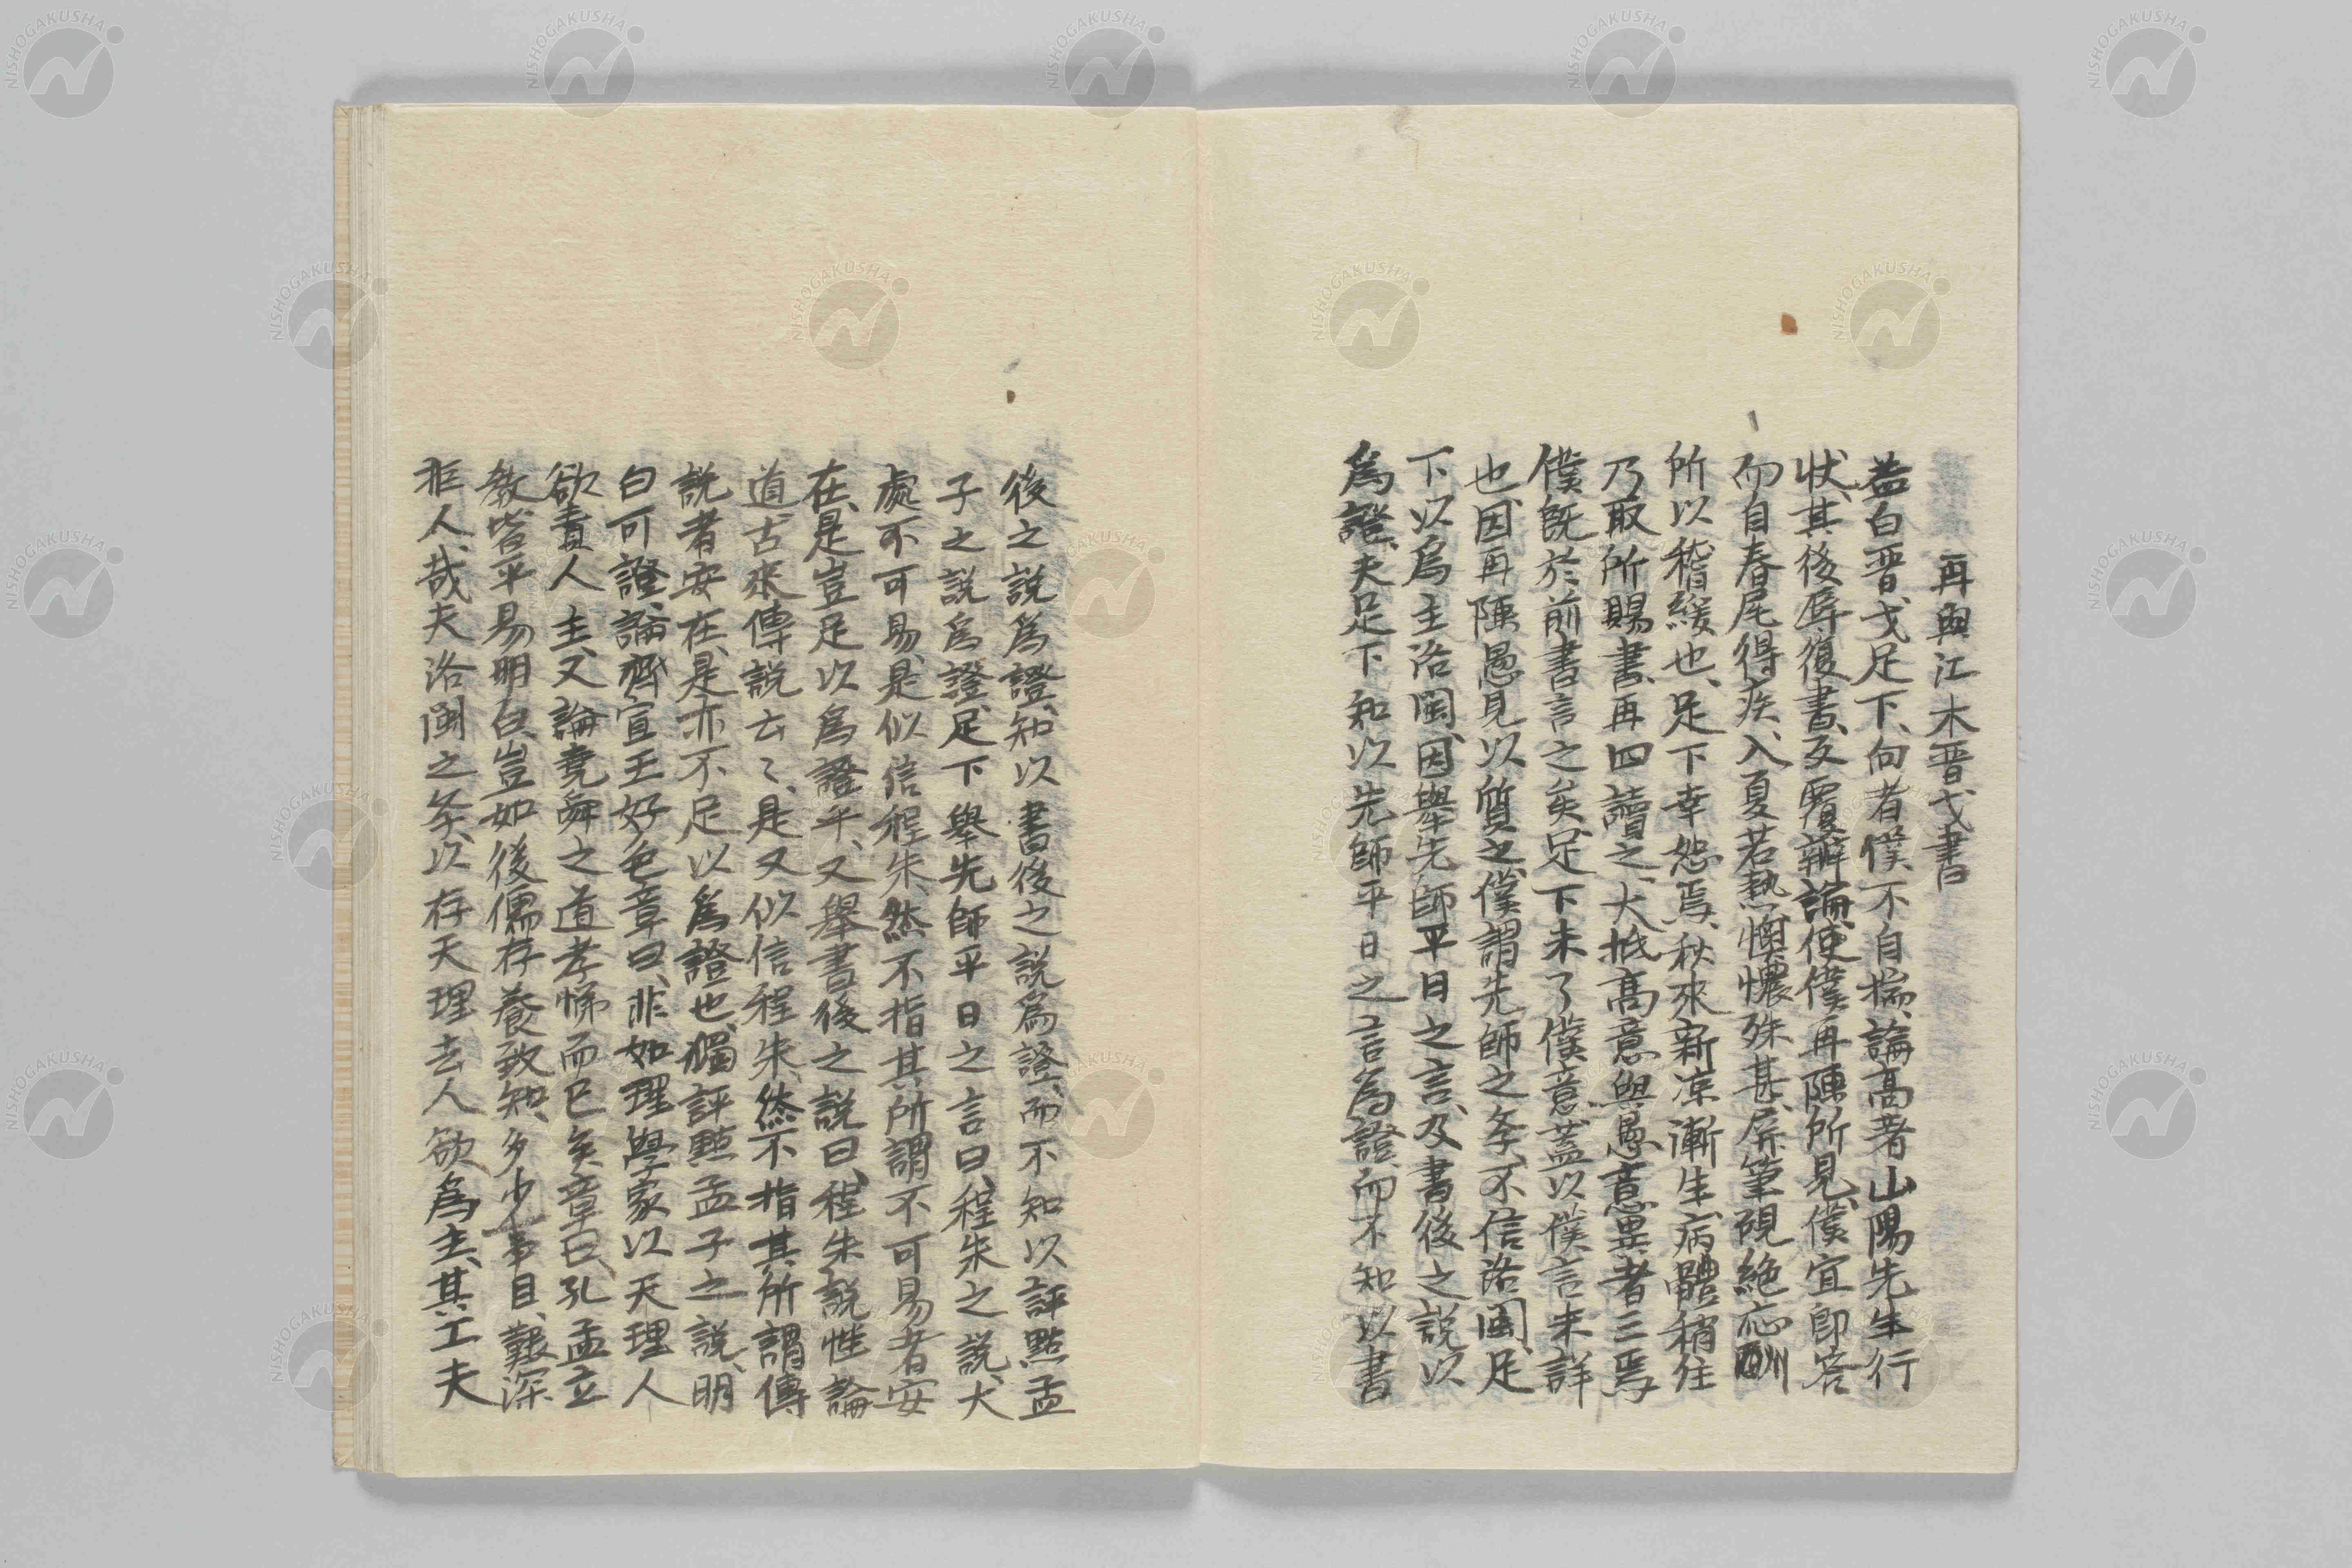 再與江木晋戈書
益白晋戈足下、向者僕不自揣、論高著山陽先生行
狀、其後辱復書、反覆辨論、使僕再陳所見、僕宜即答
而自春尾得疾、入夏若熱懊憹殊甚、屏筆硯絶応酬
所以稽緩也、足下幸恕焉、秋來新凉漸生、病體稍佳
乃取所賜書、再四讀之、大抵高意與愚意異者三焉
僕既於前書言之矣、足下未了僕意、蓋以僕言未詳
也、因再陳愚見以質之、僕謂先師之学、不信洛閩、足
下以爲主洛閩、因舉先師平日之言、及書後之説以
爲證、夫足下知以先師平日之言爲證、而不知以書
後之説爲證、知以書後之説爲證、而不知以評點孟
子之説爲證、足下舉先師平日之言曰、程朱之説、大
處不可易、是似信程朱、然不指其所謂不可易者安
在、是豈足以爲證乎、又舉書後之説曰、程朱説性論
道、古來傳説云々、是又似信程朱、然不指其所謂傳
説者安在、是亦不足以爲證也、獨評點孟子之説、明
白可證、論齊宣王好色章曰、非如理學家以天理人
欲責人主、又論堯舜之道孝悌而已矣章曰、孔孟立
教、皆平易明白、豈如後儒存養致知、多少事目、艱深
非人哉、夫洛閩之学、以存天理去人欲爲主、其工夫
NISHOGAKUSHA